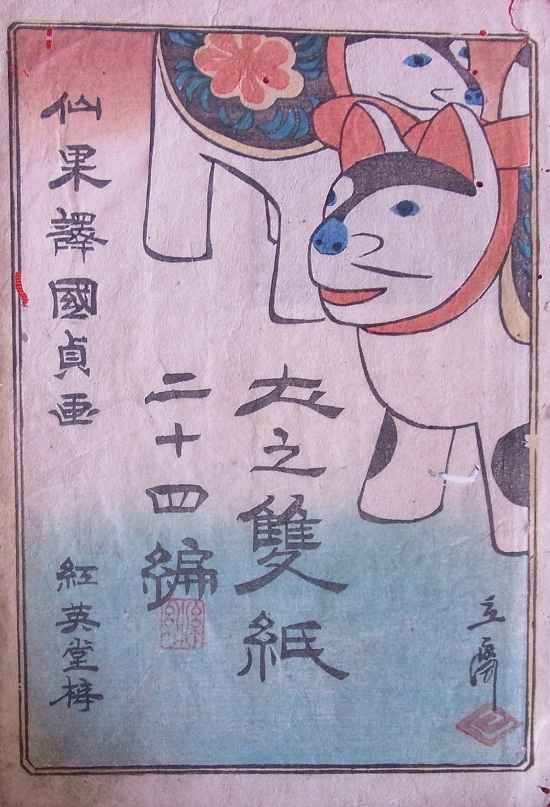 立齋
犬之雙紙
二十四編
仙果譯國貞画
紅英堂梓